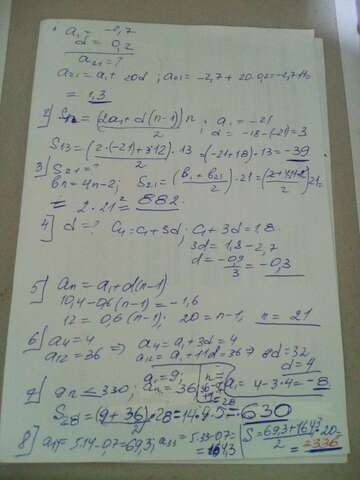 a₁ = -2,7
d = 0,2
a₂₁ = ?
a₂₁ = a₁ + 20d ; a₂₁ = -2,7 + 20·0,2 = -2,7 + 4 =
= 1,3
2) S₁₃ = (2a₁ + d(n-1))/2 · n ; a₁ = -21
d = -18-(-21) = 3
S₁₃ = (2·(-21)+3·12)/2 · 13 = (-21+18)·13 = -39
3) S₂₁ = ?
bn = 4n-2; S₂₁ = (b₁ + b₂₁)/2 · 21 =
= 2·21² = 882.
4) d = ? C₄ = C₁ + 3d; C₁ + 3d = 1,8
3d = 1,8 - 2,7
d = -0,9/3 = -0,3
5) an = a₁ + d(n-1)
10,4 - 0,6(n-1) = -1,6
12 = 0,6(n-1); 20 = n-1, n = 21
6) a₄ = 4
a₁₂ = 36 => a₄ = a₁ + 3d = 4
a₁₂ = a₁ + 11d = 36 8d = 32
d = 4
a₁ = 4 - 3·4 = -8
7) an ≤ 330; a₁ = 9; an = 36
S₂₈ = (9 + 36)/2 · 28 = 14·45 = 630
8)